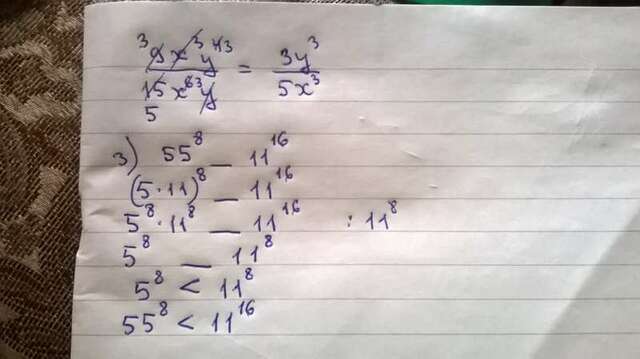 ³9 x³ y⁴ ³ / 15 x⁶ ³ y 5 = 3y³ / 5x³
3) 55⁸ _ 11¹⁶
(5·11)⁸ _ 11¹⁶
5⁸·11⁸ _ 11¹⁶ : 11⁸
5⁸ _ 11⁸
5⁸ < 11⁸
55⁸ < 11¹⁶